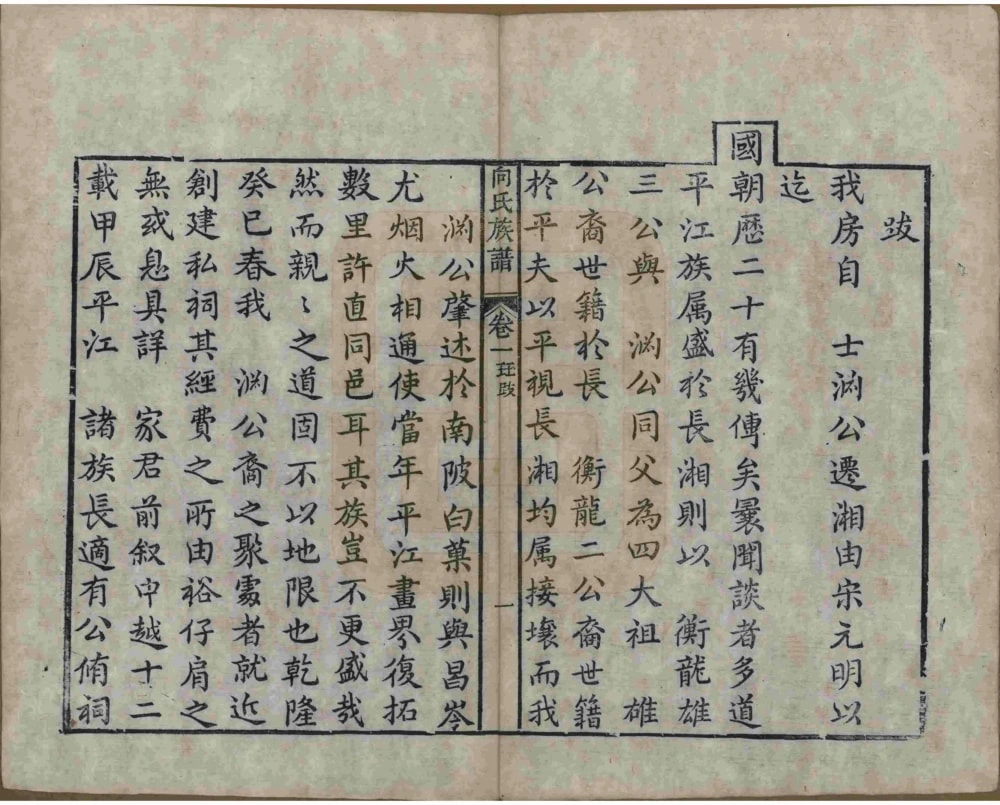 跋
我房自　士渊公遷湘由宋元明以
迄
國朝歷二十有幾傳矣曩聞談者多道
平江族属盛於長湘則以　衡龍雄
三公與　渊公同父為四大祖　雄
公裔世籍於長　衡龍二公裔世籍
於平夫以平視長湘均属接壤而我
向氏族譜　卷一　跋　一
渊公肇述於南陂白菓則與昌岑
尤烟火相通使當年平江畫界復拓
數里許直同邑耳其族豈不更盛哉
然而親〻之道固不以地限也乾隆
癸巳春我　渊公裔之聚處者就近
創建私祠其經費之所由裕仔肩之
無或息具詳　家君前叙中越十二
載甲辰平江　諸族長適有公脩祠